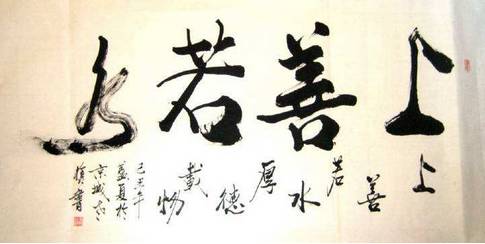 上善若水
上善若水厚德載物
盛夏於
京城
書